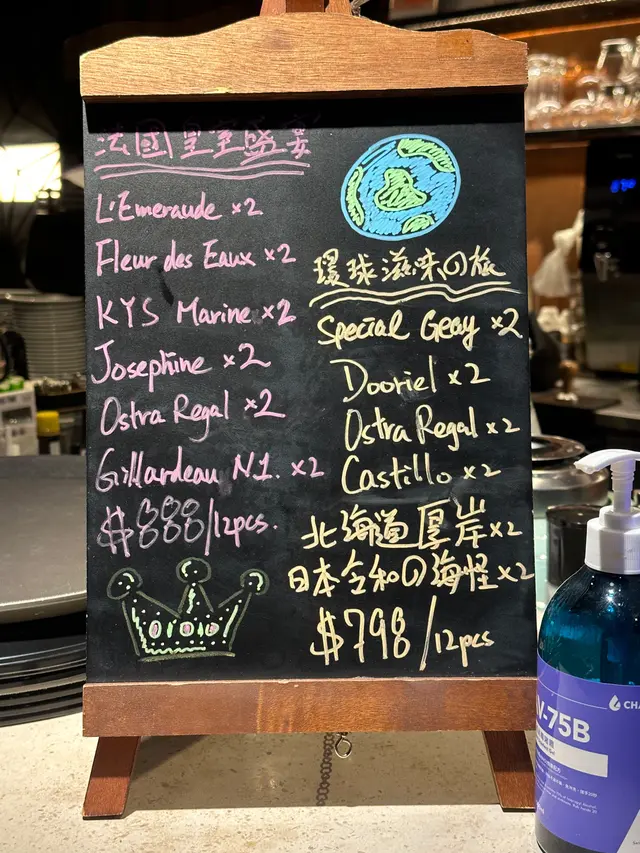 法國皇室盛宴
L'Emeraude ×2
Fleur des Eaux ×2
KYS Marine ×2
Josephine ×2
Ostra Regal ×2
Gillardeau N1. ×2
$888/12pcs.
環球滋味の旅
Special Geay ×2
Dooriel ×2
Ostra Regal ×2
Castillo ×2
北海道厚岸×2
日本令和の海怪×2
$798/12pcs
CHA
V-75B